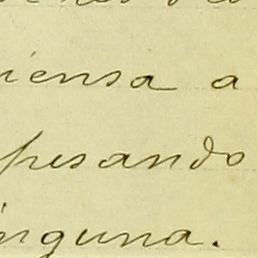 iensa a
pesando
inguna.